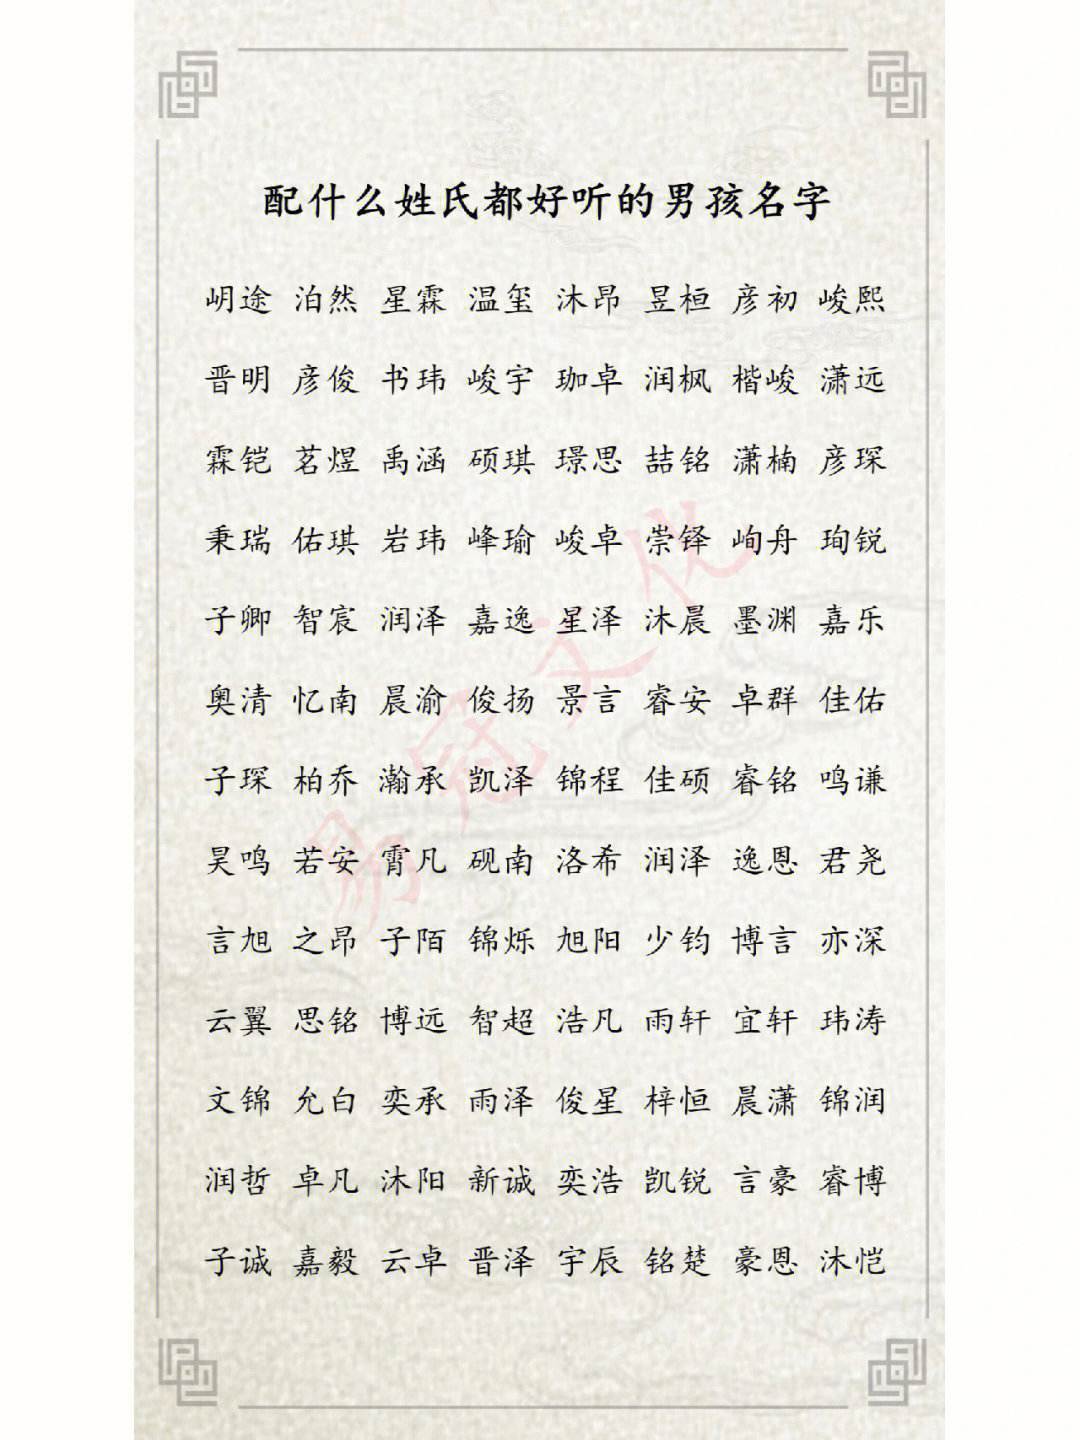 配什么姓氏都好听的男孩名字
岄途 泊然 星霖 温玺 沐昂 昱桓 彦初 峻熙
晋明 彦俊 书玮 峻宇 珈卓 润枫 楷峻 潇远
霖铠 茗煜 禹涵 硕琪 璟思 喆铭 潇楠 彦琛
秉瑞 佑琪 岩玮 峰瑜 峻卓 崇铎 峋舟 珣锐
子卿 智宸 润泽 嘉逸 星泽 沐晨 墨渊 嘉乐
奥清 忆南 晨渝 俊扬 景言 睿安 卓群 佳佑
子琛 柏乔 瀚承 凯泽 锦程 佳硕 睿铭 鸣谦
昊鸣 若安 霄凡 砚南 洛希 润泽 逸恩 君尧
言旭 之昂 子陌 锦烁 旭阳 少钧 博言 亦深
云翼 思铭 博远 智超 浩凡 雨轩 宜轩 玮涛
文锦 允白 奕承 雨泽 俊星 梓恒 晨潇 锦润
润哲 卓凡 沐阳 新诚 奕浩 凯锐 言豪 睿博
子诚 嘉毅 云卓 晋泽 宇辰 铭楚 豪恩 沐恺
易冠文化